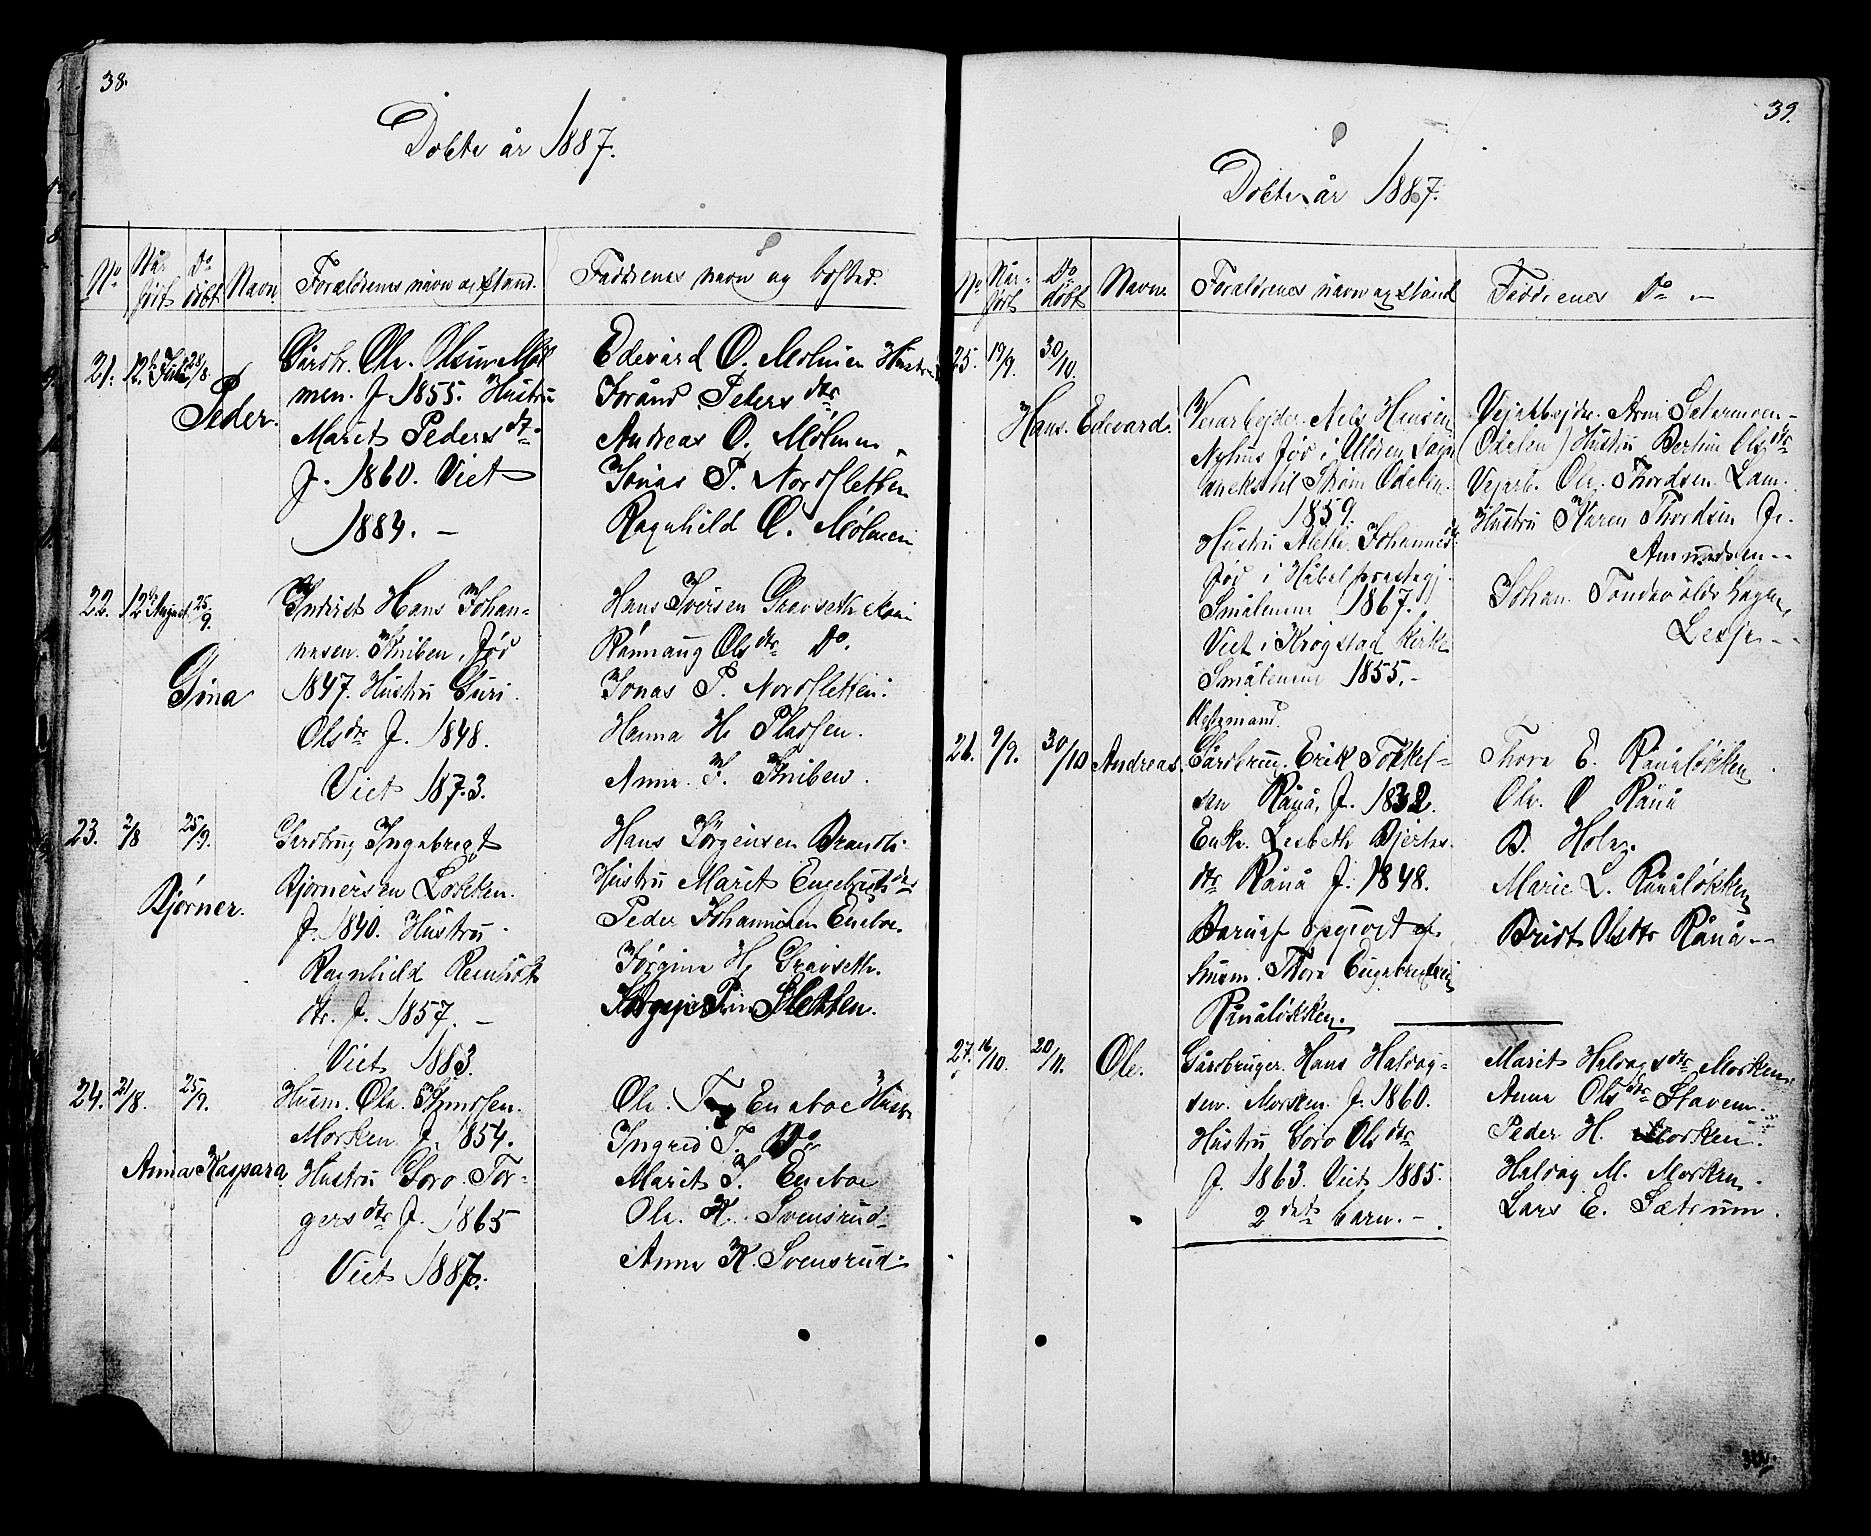 38.
Døbte år 1887.
No Når født Do døbt Navn Forældrenes navn og stand. Faddrenes navn og bosted.
21. 12te Juli 28/8. Peder.
Gårdbr. Ole Olsen Møl
men. f. 1855. Hustru
Marit Pedersdtr.
f. 1860. Viet
1884. —
Edevard O. Mølmen Hustru
Jøränd Petersdtr
Andreas O. Mølmen
Jonas P. Nordsletten
Ragnhild O. Mølmen
22. 12te August 25/9. Gina
Inderst Hans Johan-
nesen Kniben, fød
1847. Hustru Guri
Olsdtr f. 1848.
Viet 1873.
Hans Iversen Gravseth
Rannaug Olsdtr Do.
Jonas P. Nordsletten.
Hanna H. Pladsen.
Anne J. Kniben.
23. 2/8 25/9. Bjørner.
Gardbrug Ingebregt
Bjørnersen Løkken.
f. 1840. Hustru
Ragnhild
dtr. f. 1857. —
Viet 1883.
Hans Jørgensen Brandli
Hustru Marit Engebritsdtr
Peder Johannesen Enebo.
Jørgine H. Gravseth.
Sletten.
24. 21/8. 25/9. Anna Kaspara
Husm. Ole
Morken f. 1854.
Hustru Goro Tor-
gersdtr f. 1865
Viet 1887.
Ole T. Eneboe Hustr
Ingrid T. Do
Marit J. Eneboe
Ole K. Svensrud
Anne K. Svensrud
39.
Døbte år 1887.
No Når født Do døbt Navn. Forældrenes navn og stand Faddrenes Do —
25. 19/9. 30/10. Hans. Edevard.
Veiarbejder. Nels Hansen
Nyhus fød i Ullern Sogn
aneks til Strøm Odelen.
1859.
Hustru Alette Johannesdtr
fød i Håbel prestegj.
Smålenene 1867.
Viet i Krogstad Kirke
Smålenene 1855.—
Vejarbejdr. Arne Setermoen
(Odelen) Hustru Bertine Olsdtr
Vejarb. Ole Thordsen Lam.
Hustru Karen Thordsen f.
Amundsen —
Johan
Lesje —
26. 9/9. 30/10 Andreas.
Gårdbrug. Erik Tokkel-
sen Rånå, f. 1832.
Enke. Lesbeth Bjerhs.
dtr Rånå f. 1848.
Barnef opgivet af.
husm. Thore Engebregtsen
Rånåløkken.
Thore E. Rånåløkken
Ole O Rånå
B. Holne
Marie L. Rånåløkken
Bridt Olsdtr Rånå —
27. 16/10. 20/11. Ole.
Gårdbruger. Hans Halvag-
sen. Morken. f. 1860.
Hustru Goro Olsdtr
f. 1863. Viet 1885.
2det barn. —
Marit Halvagsdtr Morken
Anne Olsdtr Stavem.
Peder H. Morken.
Halvag M. Morken.
Lars E. Sætrum.